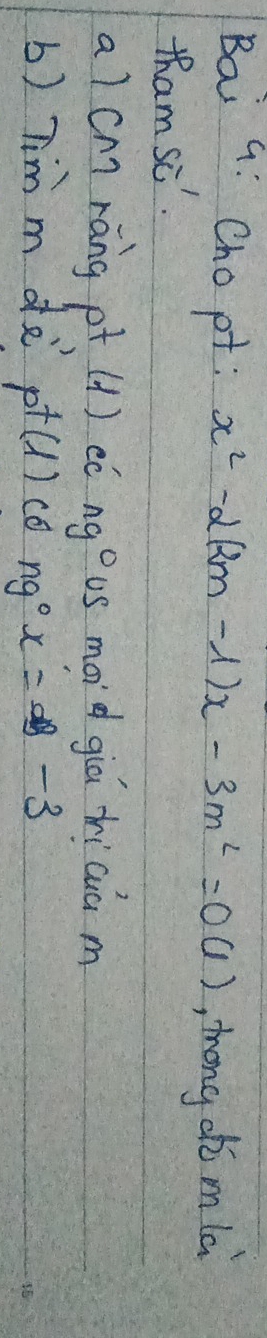 Bài 4: Cho pt: x² - 2(2m - 1)x - 3m² = 0 (1), trong đó m là
tham số.
a) CM rằng pt (1) có ng° vs mọi giá trị của m
b) Tìm m để pt (1) có ng° x = -3